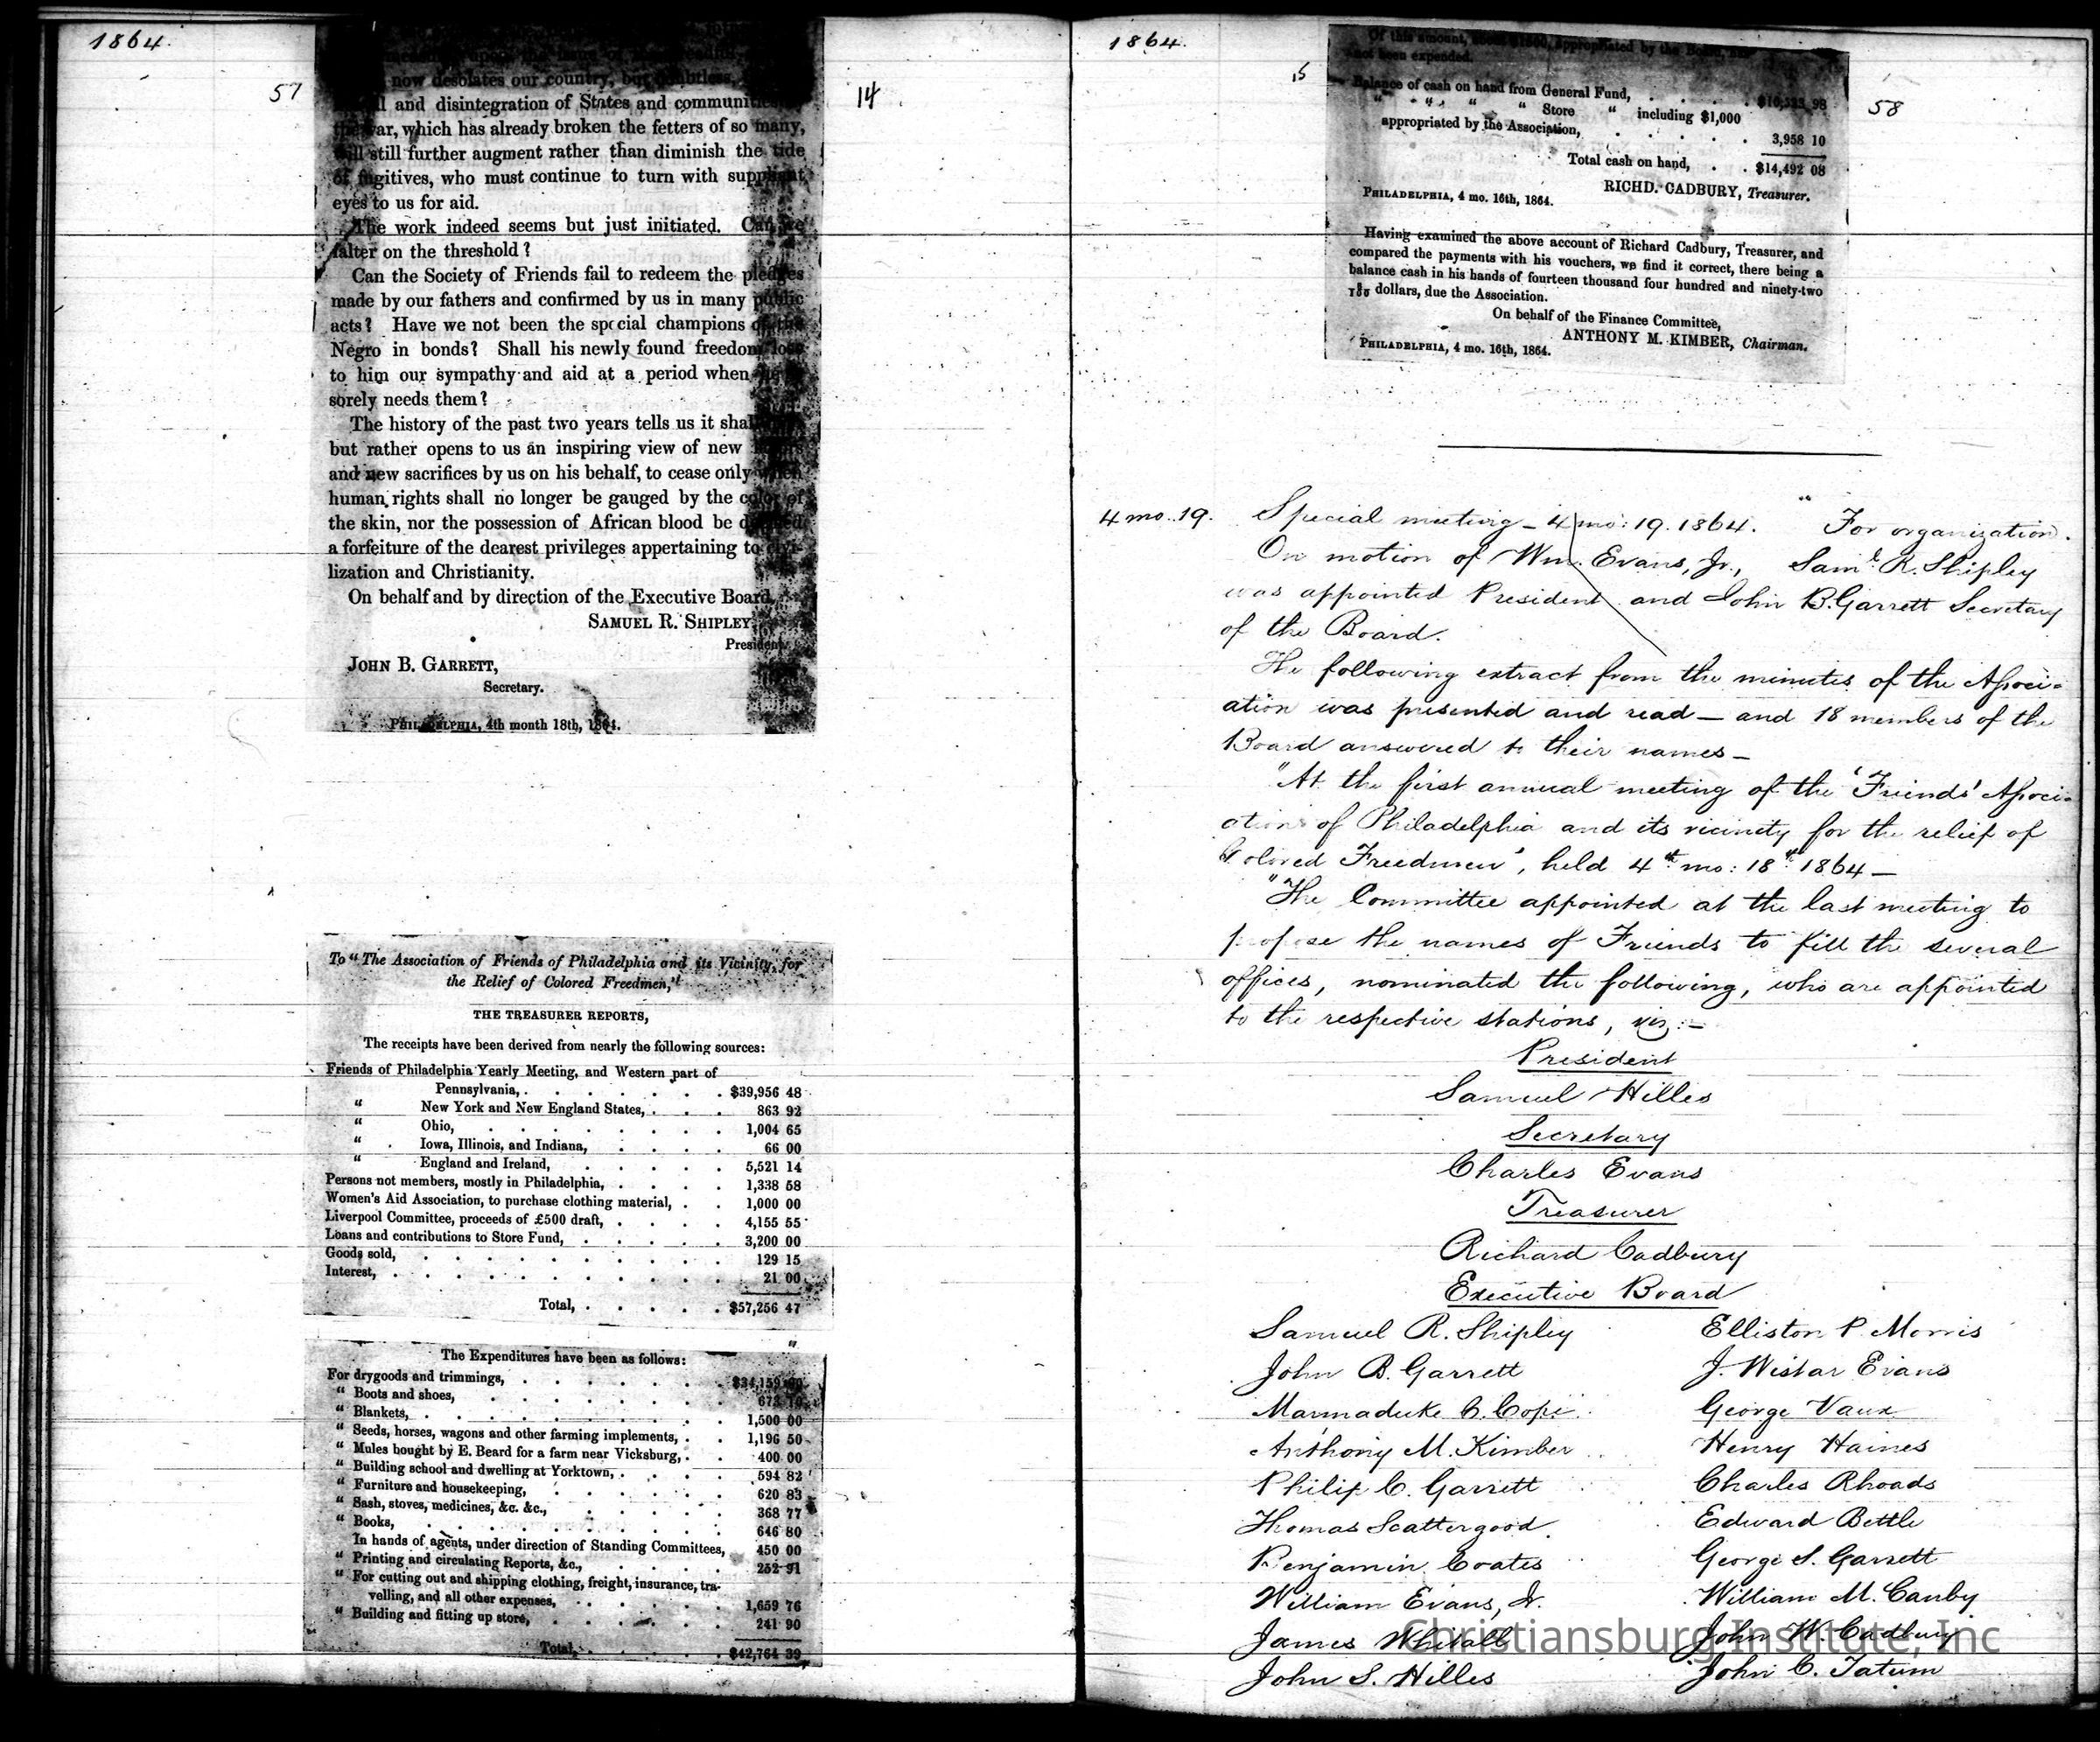 1864.
57
14
now desolates our country, but doubtless,
and disintegration of States and communities
the war, which has already broken the fetters of so many,
will still further augment rather than diminish the tide
of fugitives, who must continue to turn with suppliant
eyes to us for aid.
The work indeed seems but just initiated. Can we
falter on the threshold?
Can the Society of Friends fail to redeem the pledges
made by our fathers and confirmed by us in many public
acts? Have we not been the special champions of the
Negro in bonds? Shall his newly found freedom lose
to him our sympathy and aid at a period when he
sorely needs them?
The history of the past two years tells us it shall
but rather opens to us an inspiring view of new
and new sacrifices by us on his behalf, to cease only when
human rights shall no longer be gauged by the color of
the skin, nor the possession of African blood be deemed
a forfeiture of the dearest privileges appertaining to civi-
lization and Christianity.
On behalf and by direction of the Executive Board,
SAMUEL R. SHIPLEY,
President.
JOHN B. GARRETT,
Secretary.
PHILADELPHIA, 4th month 18th, 1864.
To "The Association of Friends of Philadelphia and its Vicinity, for
the Relief of Colored Freedmen,"
THE TREASURER REPORTS,
The receipts have been derived from nearly the following sources:
Friends of Philadelphia Yearly Meeting, and Western part of
Pennsylvania, . . . . . . $39,956 48
" New York and New England States, . . . 863 92
" Ohio, . . . . . . . 1,004 65
" Iowa, Illinois, and Indiana, . . . . 66 00
" England and Ireland, . . . . . 5,521 14
Persons not members, mostly in Philadelphia, . . . . 1,338 58
Women's Aid Association, to purchase clothing material, . . 1,000 00
Liverpool Committee, proceeds of £500 draft, . . . . 4,155 55
Loans and contributions to Store Fund, . . . . . 3,200 00
Goods sold, . . . . . . . . . 129 15
Interest, . . . . . . . . . . 21 00
Total, . . . . . $57,256 47
The Expenditures have been as follows:
For drygoods and trimmings, . . . . . . $34,159
" Boots and shoes, . . . . . . .
" Blankets, . . . . . . . . . 1,500 00
" Seeds, horses, wagons and other farming implements, . . 1,196 50
" Mules bought by E. Beard for a farm near Vicksburg, . . 400 00
" Building school and dwelling at Yorktown, . . . . 594 82
" Furniture and housekeeping, . . . . . . 620 83
" Sash, stoves, medicines, &c. &c., . . . . . 368 77
" Books, . . . . . . . . . 646 80
In hands of agents, under direction of Standing Committees, 450 00
" Printing and circulating Reports, &c., . . . . 252 91
" For cutting out and shipping clothing, freight, insurance, tra-
velling, and all other expenses, . . . . . 1,659 76
" Building and fitting up store, . . . . . . 241 90
Total, . . . . . $42,764 39
1864.
15
58
Of this amount, appropriated by the Board,
not been expended.
Balance of cash on hand from General Fund, . . . . $10,533 98
" " " " Store " including $1,000
appropriated by the Association, . . . . . 3,958 10
Total cash on hand, . . $14,492 08
RICHD. CADBURY, Treasurer.
PHILADELPHIA, 4 mo. 16th, 1864.
Having examined the above account of Richard Cadbury, Treasurer, and
compared the payments with his vouchers, we find it correct, there being a
balance cash in his hands of fourteen thousand four hundred and ninety-two
8/100 dollars, due the Association.
On behalf of the Finance Committee,
ANTHONY M. KIMBER, Chairman.
PHILADELPHIA, 4 mo. 16th, 1864.
4 mo. 19. Special meeting – 4 mo: 19. 1864. "For organization.
On motion of Wm. Evans, Jr., Saml. R. Shipley
was appointed President and John B. Garrett Secretary
of the Board.
The following extract from the minutes of the Associ-
ation was presented and read – and 18 members of the
Board answered to their names –
"At the first annual meeting of the 'Friends' Associ-
ation of Philadelphia and its vicinity for the relief of
Colored Freedmen', held 4th mo: 18th 1864 –
"The Committee appointed at the last meeting to
propose the names of Friends to fill the several
offices, nominated the following, who are appointed
to the respective stations, viz: –
President
Samuel Hilles
Secretary
Charles Evans
Treasurer
Richard Cadbury
Executive Board
Samuel R. Shipley Elliston P. Morris
John B. Garrett J. Wistar Evans
Marmaduke C. Cope George Vaux
Anthony M. Kimber Henry Haines
Philip C. Garrett Charles Rhoads
Thomas Scattergood Edward Bettle
Benjamin Coates George S. Garrett
William Evans, Jr. William M. Canby
James Whitall John W. Cadbury
John S. Hilles John C. Tatum
Christiansburg Institute, Inc